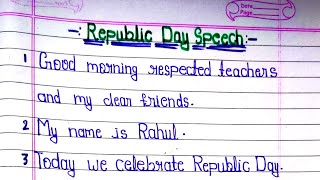 Date
Page
-: Republic Day Speech:-
1 Good morning respected teachers
and my dear friends.
2 My name is Rahul.
3 Today we celebrate Republic Day.